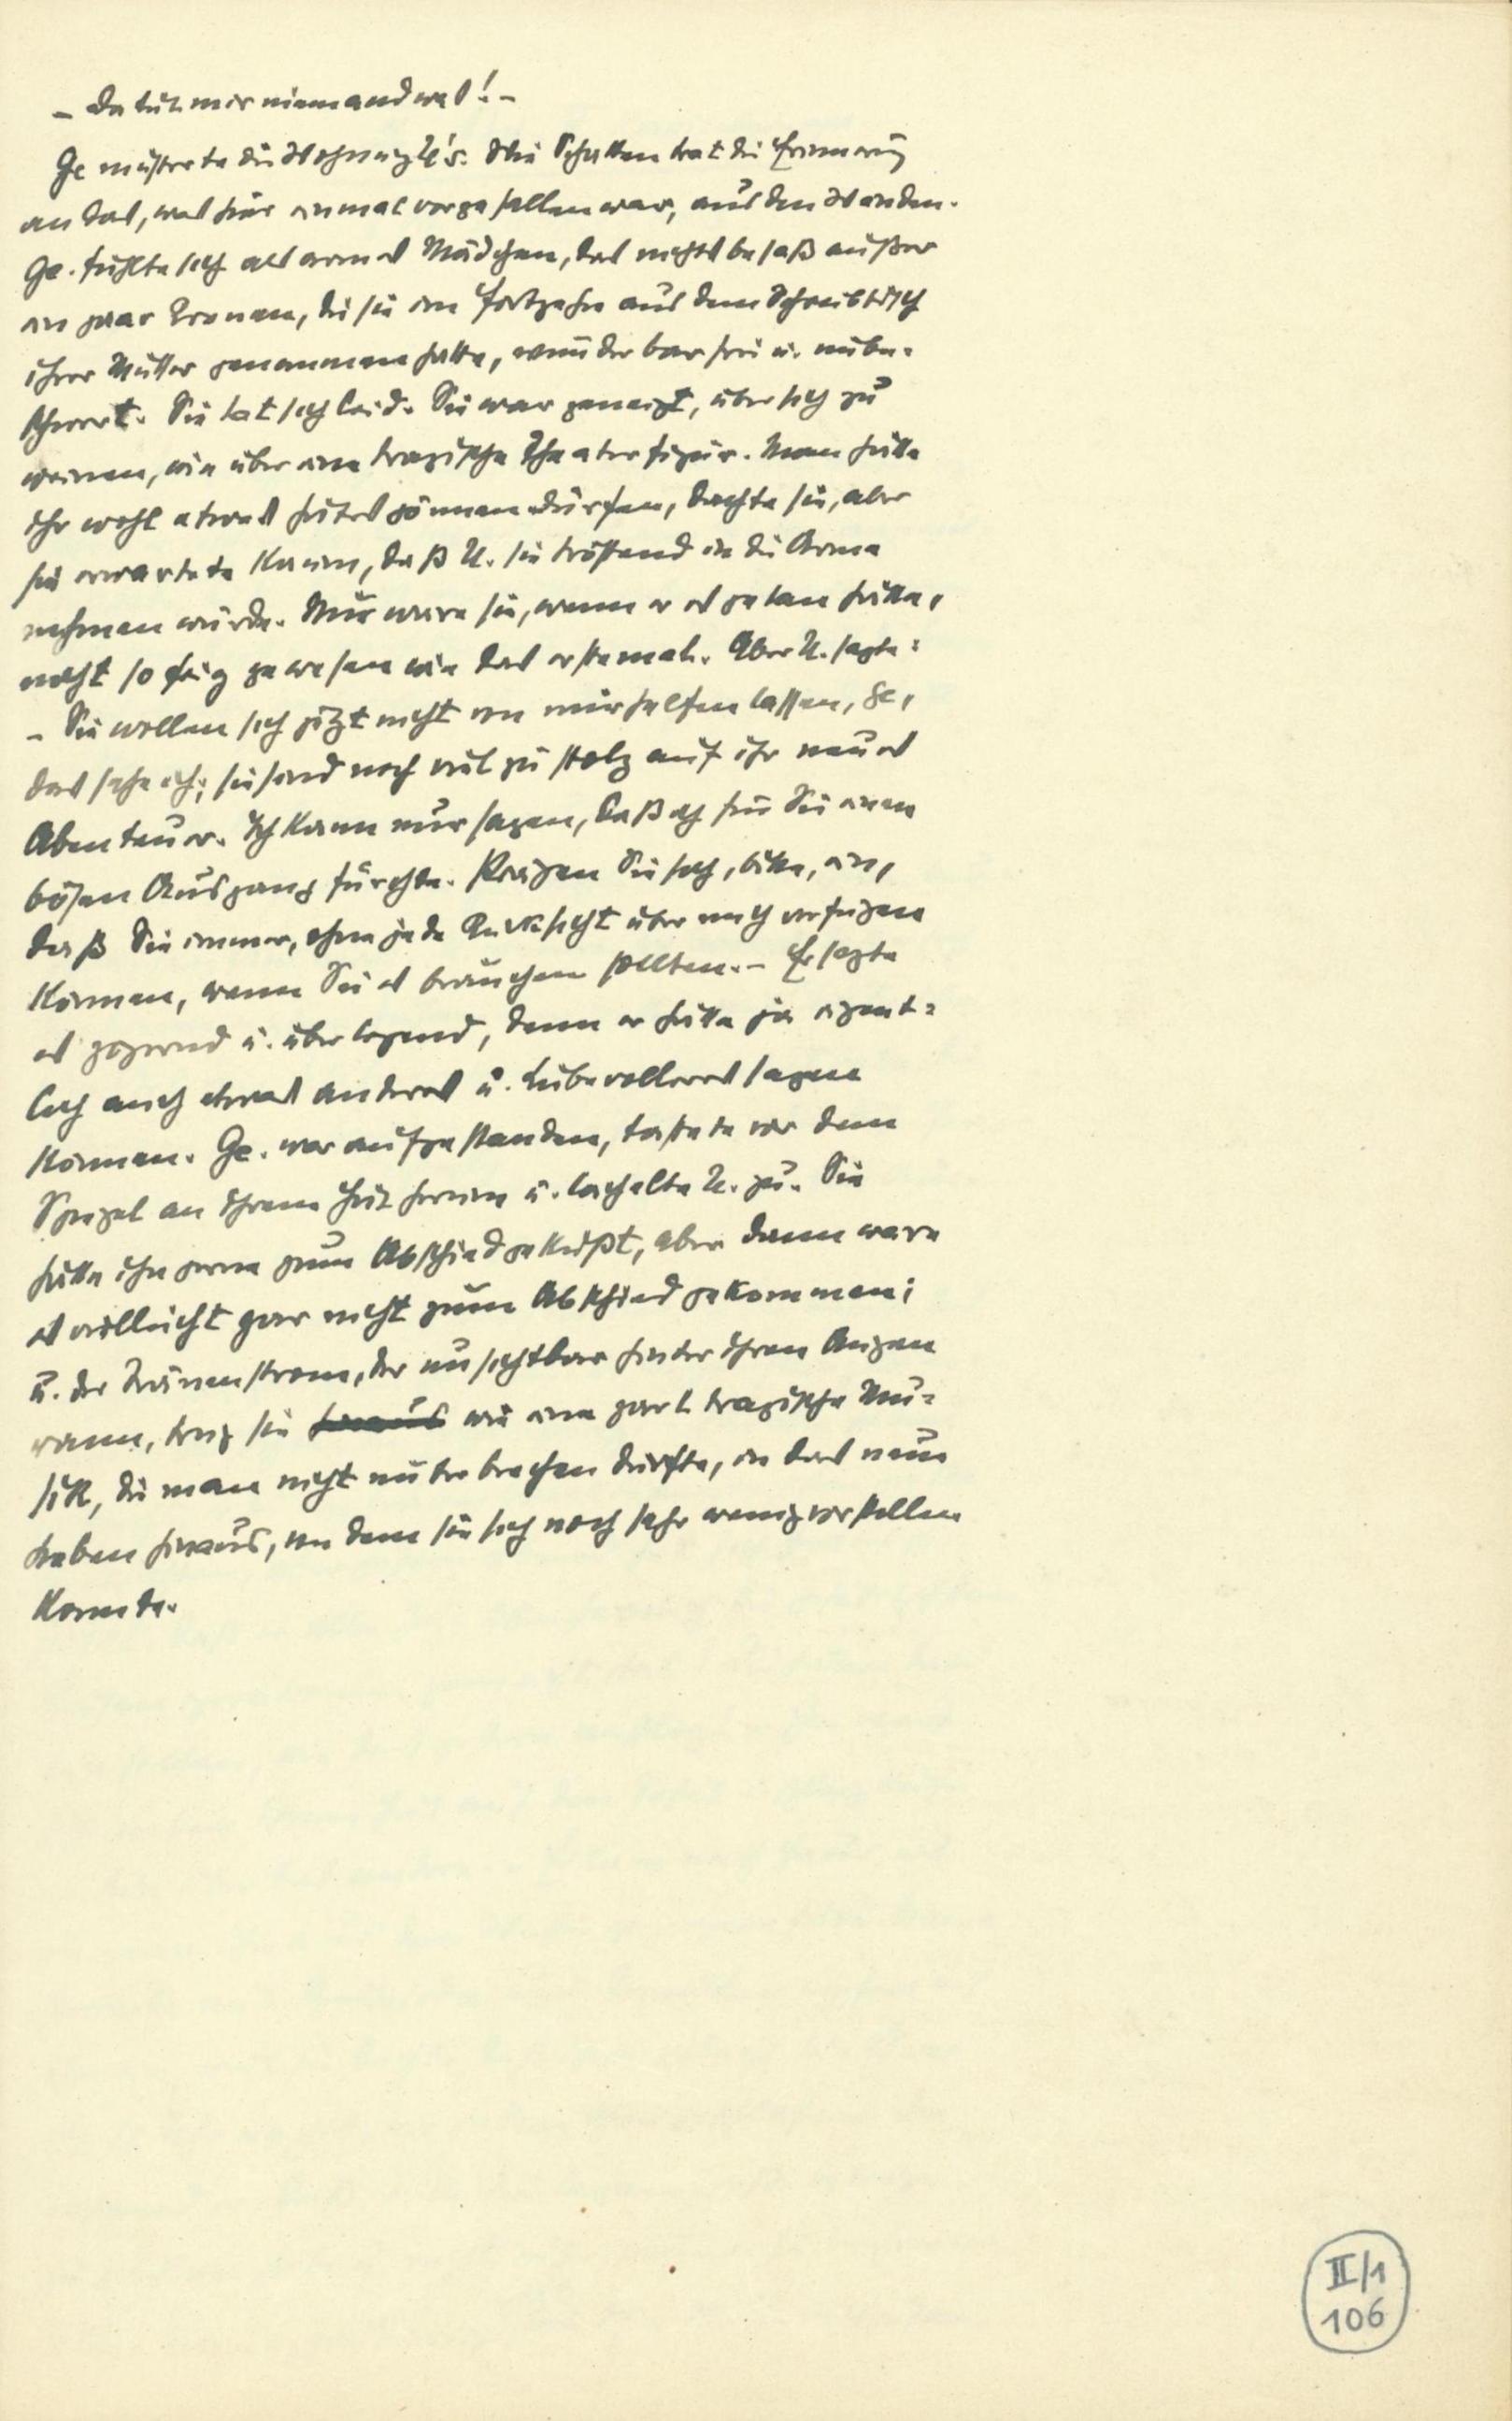 – Da tut mir niemand was! –
Ge musterte die Wohnung U's. Wie Schatten trat die Erinnerung
an das, was hier einmal vorgefallen war, aus den Wänden.
Ge. fühlte sich als armes Mädchen, das nichts besaß außer
ein paar Kronen, die sie im Fortgehn aus dem Schreibtisch
ihrer Mutter genommen hatte, wunderbar frei u. unbe-
schwert. Sie tat sich leid. Sie war geneigt, über sich zu
weinen, wie über eine tragische Theaterfigur. Man hätte
ihr wohl etwas Gutes gönnen dürfen, dachte sie, aber
sie erwartete kaum, daß U. sie tröstend in die Arme
nehmen würde. Nur wäre sie, wenn er es getan hätte,
nicht so feig gewesen wie das erstemal. Aber U. sagte:
– Sie wollen sich jetzt nicht von mir helfen lassen, Ge,
das sehe ich; sie sind noch viel zu stolz auf ihr neues
Abenteuer. Ich kann nur sagen, daß ich für Sie einen
bösen Ausgang fürchte. Prägen Sie sich, bitte, ein,
daß Sie immer, ohne jede Rücksicht über mich verfügen
können, wenn Sie es brauchen sollten. – Er sagte
es zögernd u. überlegend, denn er hätte ja eigent-
lich auch etwas andres u. Liebevolleres sagen
können. Ge. war aufgestanden, tastete vor dem
Spiegel an ihrem Hut herum u. lächelte U. zu. Sie
hätte ihn gerne zum Abschied geküßt, aber dann wäre
es vielleicht gar nicht zum Abschied gekommen;
u. der Tränenstrom, der unsichtbar hinter ihren Augen
rann, trug sie hinaus wie eine zart tragische Mu-
sik, die man nicht unterbrechen durfte, in das neue
Leben hinaus, von dem sie sich noch sehr wenig vorstellen
konnte.
II/1
106